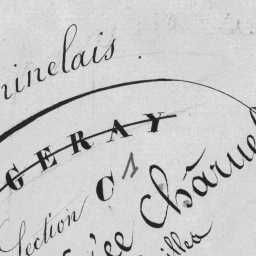 ninelais.
GERAY
Section C 1
ée Châruel
illes